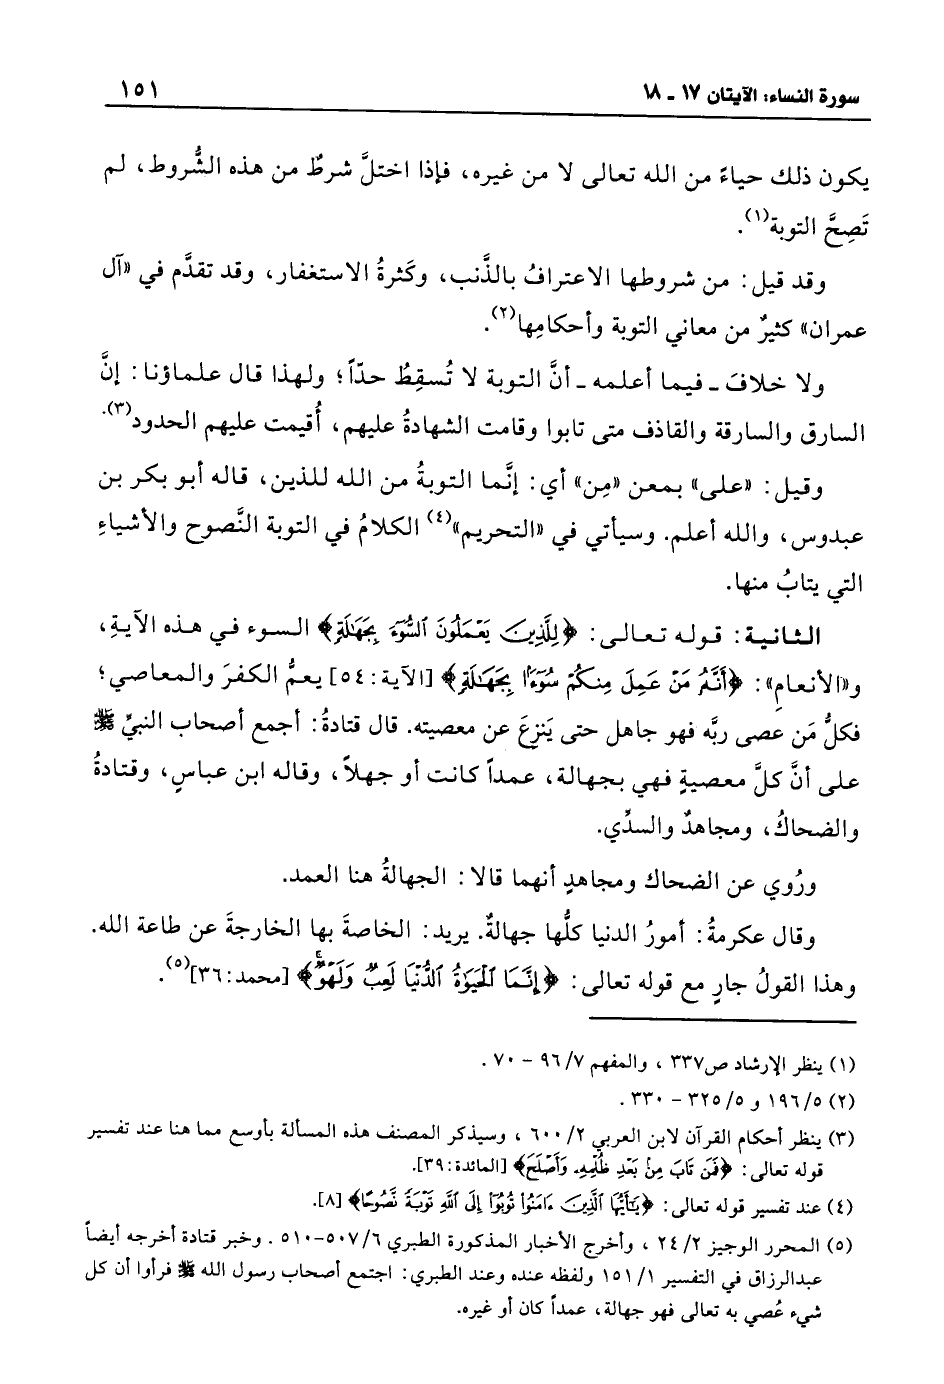 سورة النساء: الآيتان ١٧ ـ ١٨
١٥١
يكون ذلك حياءً من الله تعالى لا من غيره، فإذا اختلَّ شرطٌ من هذه الشُّروط، لم
تَصِحَّ التوبة(١).
وقد قيل: من شروطها الاعترافُ بالذَّنب، وكَثرةُ الاستغفار، وقد تقدَّم في «آل
عمران» كثيرٌ من معاني التوبة وأحكامِها(٢).
ولا خلافَ ـ فيما أعلمه ـ أنَّ التوبة لا تُسقِطُ حدّاً؛ ولهذا قال علماؤنا: إنَّ
السارق والسارقة والقاذف متى تابوا وقامت الشهادةُ عليهم، أُقيمت عليهم الحدود(٣).
وقيل: «على» بمعن «مِن» أي: إنَّما التوبةُ من الله للذين، قاله أبو بكر بن
عبدوس، والله أعلم. وسيأتي في «التحريم»(٤) الكلامُ في التوبة النَّصوح والأشياءِ
التي يتابُ منها.
الثانية: قوله تعالى: ﴿لِلَّذِينَ يَعْمَلُونَ ٱلسُّوٓءَ بِجَهَٰلَةٍ﴾ السوء في هذه الآيةِ،
و«الأنعامِ»: ﴿أَنَّهُۥ مَنْ عَمِلَ مِنكُمْ سُوٓءًۢا بِجَهَٰلَةٍ﴾ [الآية: ٥٤] يعمُّ الكفرَ والمعاصي؛
فكلُّ مَن عصى ربَّه فهو جاهل حتى يَنزِعَ عن معصيته. قال قتادةُ: أجمع أصحاب النبيِّ ﷺ
على أنَّ كلَّ معصيةٍ فهي بجهالة، عمداً كانت أو جهلاً، وقاله ابن عباسٍ، وقتادةُ
والضحاكُ، ومجاهدٌ والسدِّي.
ورُوي عن الضحاك ومجاهدٍ أنهما قالا: الجهالةُ هنا العمد.
وقال عكرمةُ: أمورُ الدنيا كلُّها جهالةٌ. يريد: الخاصةَ بها الخارجةَ عن طاعة الله.
وهذا القولُ جارٍ مع قوله تعالى: ﴿إِنَّمَا ٱلْحَيَوٰةُ ٱلدُّنْيَا لَعِبٌ وَلَهْوٌۚ﴾ [محمد: ٣٦](٥).
(١) ينظر الإرشاد ص٣٣٧ ، والمفهم ٧/ ٩٦ - ٧٠ .
(٢) ٥/ ١٩٦ و ٥/ ٣٢٥ - ٣٣٠ .
(٣) ينظر أحكام القرآن لابن العربي ٢/ ٦٠٠ ، وسيذكر المصنف هذه المسألة بأوسع مما هنا عند تفسير
قوله تعالى: ﴿فَمَن تَابَ مِنۢ بَعْدِ ظُلْمِهِۦ وَأَصْلَحَ﴾ [المائدة: ٣٩].
(٤) عند تفسير قوله تعالى: ﴿يَٰٓأَيُّهَا ٱلَّذِينَ ءَامَنُوا۟ تُوبُوٓا۟ إِلَى ٱللَّهِ تَوْبَةً نَّصُوحًا﴾ [٨].
(٥) المحرر الوجيز ٢/ ٢٤ ، وأخرج الأخبار المذكورة الطبري ٦/ ٥٠٧-٥١٠ . وخبر قتادة أخرجه أيضاً
عبدالرزاق في التفسير ١/ ١٥١ ولفظه عنده وعند الطبري: اجتمع أصحاب رسول الله ﷺ فرأوا أن كل
شيء عُصي به تعالى فهو جهالة، عمداً كان أو غيره.